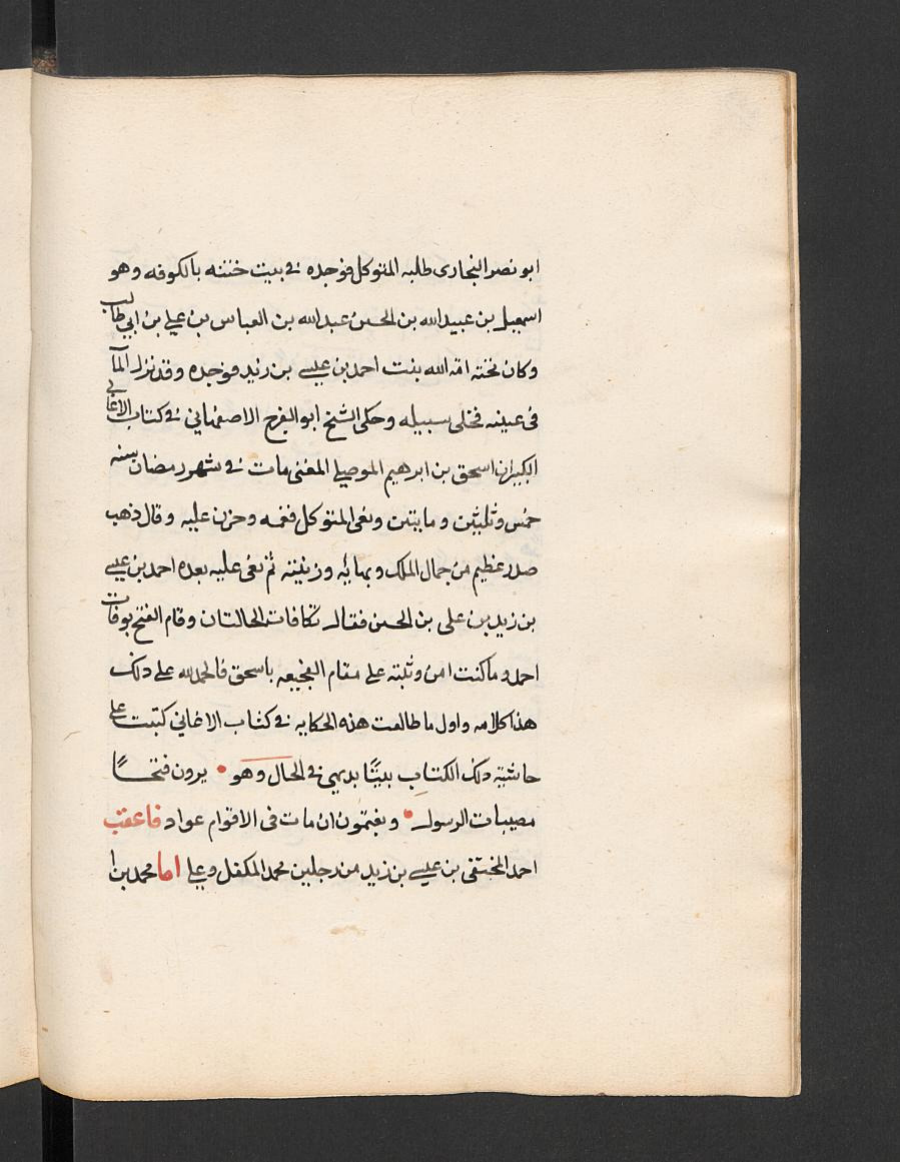 ابو نصر البخاری طلبه المتوكل فوجده فی بیت ختنه بالكوفه وهو
اسمعیل بن عبیدالله بن الحسن عبدالله بن العباس بن علی بن ابی طالب
وكان تحته امة الله بنت احمد بن عیسی بن زید فوجده وقد نزل المآ
فی عینه فخلی سبیله وحكی الشیخ ابو الفرج الاصفهانی فی كتاب الاغانی
الكبیر ان اسحق بن ابرهیم الموصلی المغنی مات فی شهر رمضان سنه
خمس وثلیثین ومایتین ونعی المتوكل فغمه وحزن علیه وقال ذهب
صدر عظیم من جمال الملك وبهائه وزینته ثم نعی علیه بعده احمد بن عیسی
بن زید بن علی بن الحسن فقال تكافات الحالتان وقام الفتح بوفات
احمد وما كنت امن وثبته علی مقام الفجیعه باسحق فالحمدلله علی ذلك
هذا كلامه واول ما طالعت هذه الحكایه فی كتاب الاغانی كتبت علی
حاشیة ذلك الكتاب بیتًا بدیهی فی الحال وهو • یرون فتحـــًا
مصیبات الرسول • ویغتمون ان مات فی الاقوام عواد فاعقب
احمد المختفی بن عیسی بن زید من رجلین محمد المكفل وعلی اما محمد بن ا